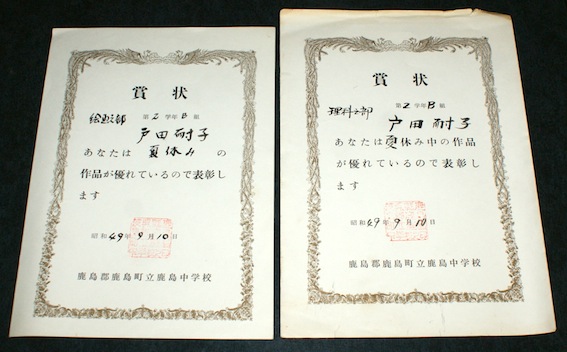 賞状
絵画之部
第2学年B組
戸田耐子
あなたは夏休みの
作品が優れているので表彰し
ます
昭和49年9月10日
鹿島郡鹿島町立鹿島中学校
賞状
理科之部
第2学年B組
戸田耐子
あなたは夏休み中の作品
が優れているので表彰し
ます
昭和49年9月10日
鹿島郡鹿島町立鹿島中学校